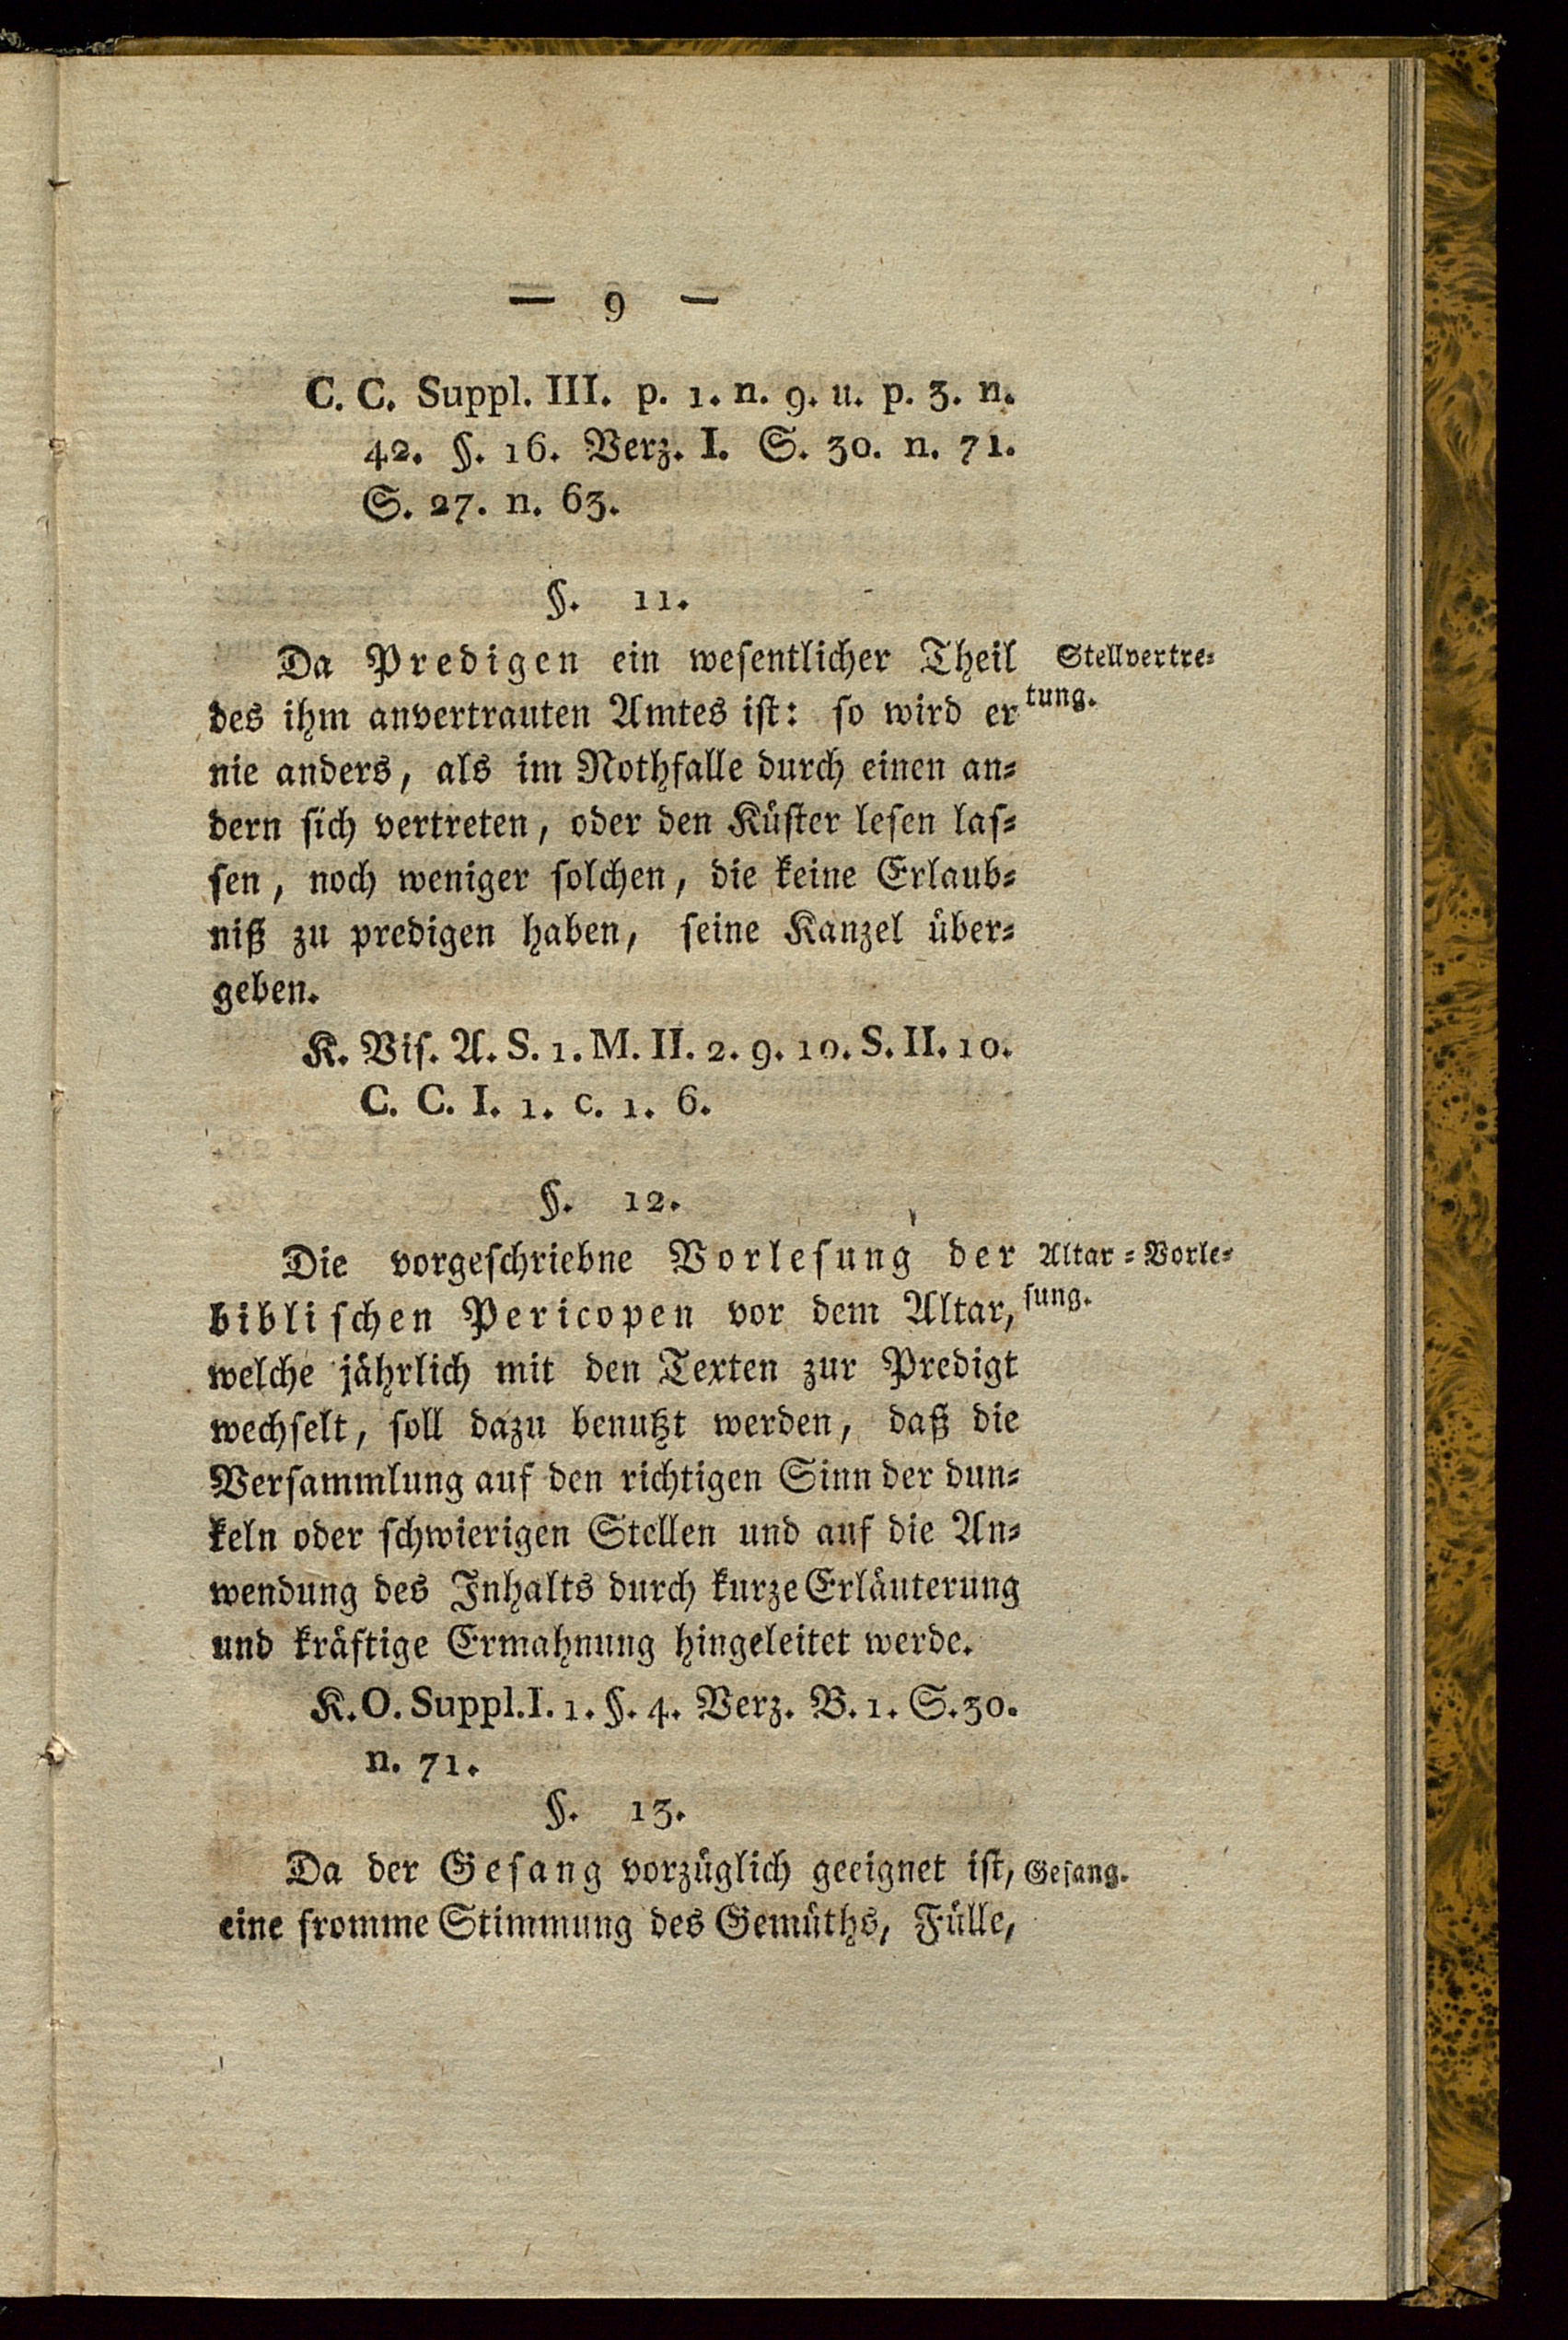 — 9 —
C. C. Suppl. III. p. 1. n. 9. u. p. 3. n.
42. §. 16. Verz. I. S. 30. n. 71.
S. 27. n. 63.
§. 11.
Da Predigen ein wesentlicher Theil
Stellvertre⸗
des ihm anvertrauten Amtes ist: so wird er
tung.
nie anders, als im Nothfalle durch einen an⸗
dern sich vertreten, oder den Küster lesen las⸗
sen, noch weniger solchen, die keine Erlaub⸗
niß zu predigen haben, seine Kanzel über⸗
geben.
K. Vis. A. S. 1. M. II. 2. 9. 10. S. II. 10.
C. C. I. 1. c. 1. 6.
§. 12.
Die vorgeschriebne Vorlesung der
Altar⸗Vorle⸗
biblischen Pericopen vor dem Altar,
sung.
welche jährlich mit den Texten zur Predigt
wechselt, soll dazu benutzt werden, daß die
Versammlung auf den richtigen Sinn der dun⸗
keln oder schwierigen Stellen und auf die An⸗
wendung des Inhalts durch kurze Erläuterung
und kräftige Ermahnung hingeleitet werde.
K. O. Suppl. I. 1. §. 4. Verz. B. 1. S. 30.
n. 71.
§. 13.
Da der Gesang vorzüglich geeignet ist,
Gesang.
eine fromme Stimmung des Gemüths, Fülle,